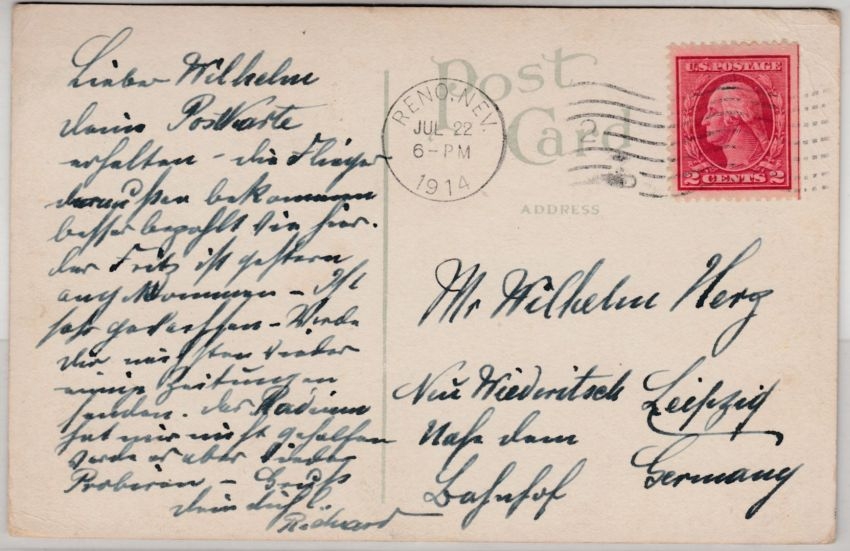 Lieber Wilhelm
deine Postkarte
erhalten – die Flieger
daraussen bekommen
besser bezahlt wie hier.
der Fritz ist gestern
ang kommen – Ist
sehr gewachsen – Werde
dir nächsten wieder
einige Zeitungen
senden. das Radium
hat mir nicht geholfen
werde es aber wieder
Probieren – Gruss
dein
Richard
Post
Card
ADDRESS
RENO, NEV.
JUL 22
6-PM
1914
2
U.S. POSTAGE
2 CENTS 2
Mr Wilhelm Herz
Neu Wiederitsch Leipzig
Nahe dem
Bahnhof
Germany